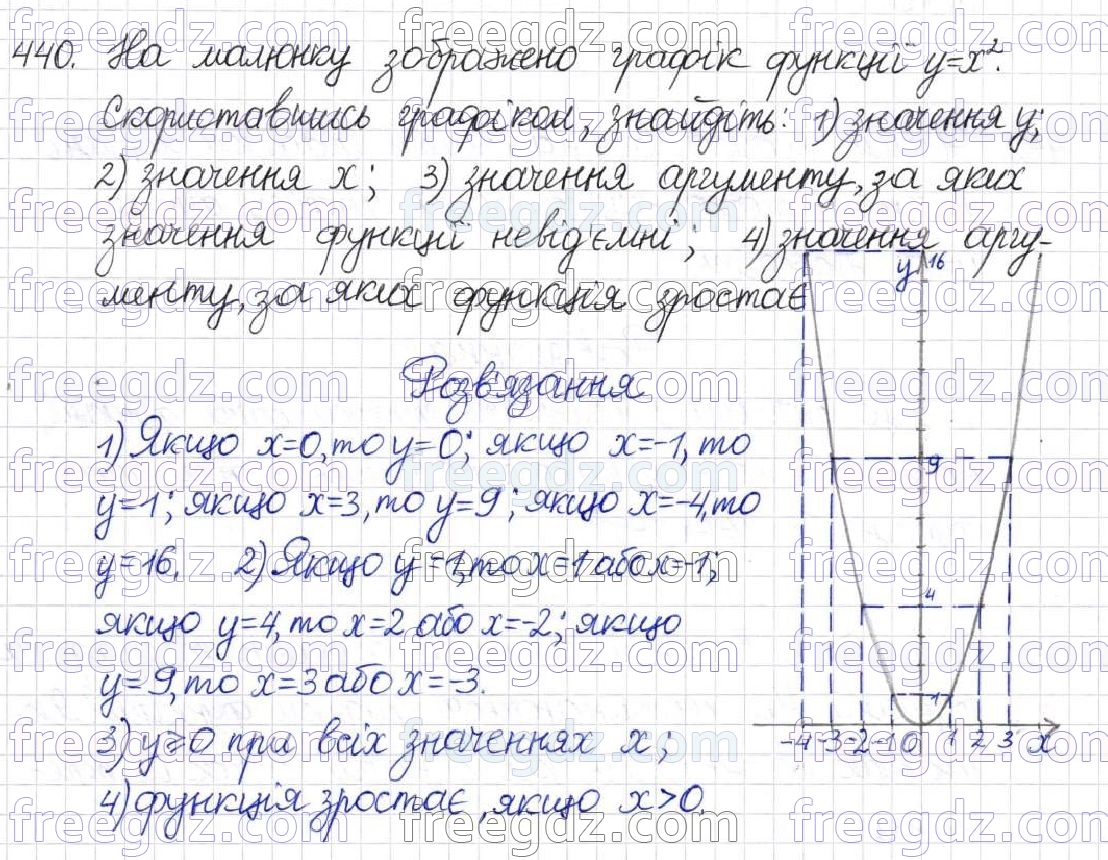 440. На малюнку зображено графік функції y=x².
Скориставшись графіком, знайдіть: 1) значення y;
2) значення x; 3) значення аргументу, за яких
значення функції невід'ємні; 4) значення аргу-
менту, за яких функція зростає
Розв'язання
1) Якщо x=0, то y=0; якщо x=-1, то
y=1; якщо x=3, то y=9; якщо x=-4, то
y=16. 2) Якщо y=1, то x=1 або x=-1;
якщо y=4, то x=2 або x=-2; якщо
y=9, то x=3 або x=-3.
3) y≥0 при всіх значеннях x;
4) функція зростає, якщо x>0.
y 16
9
4
1
-4 -3 -2 -1 0 1 2 3 x
freegdz.com